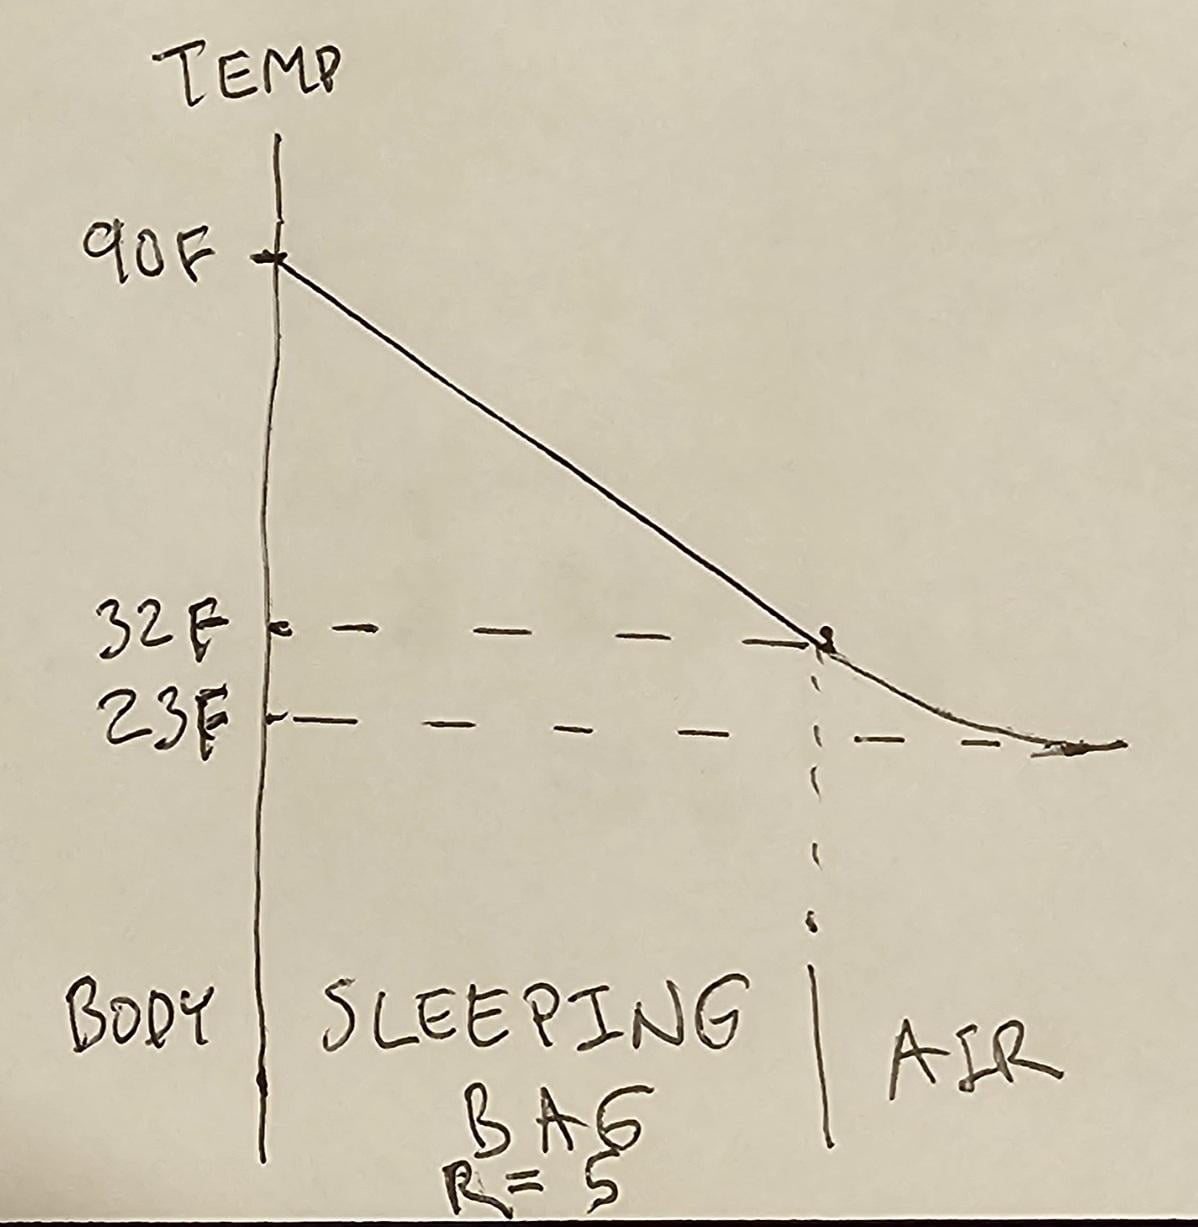 TEMP
90F
32F
23F
BODY
SLEEPING
BAG
R = 5
AIR